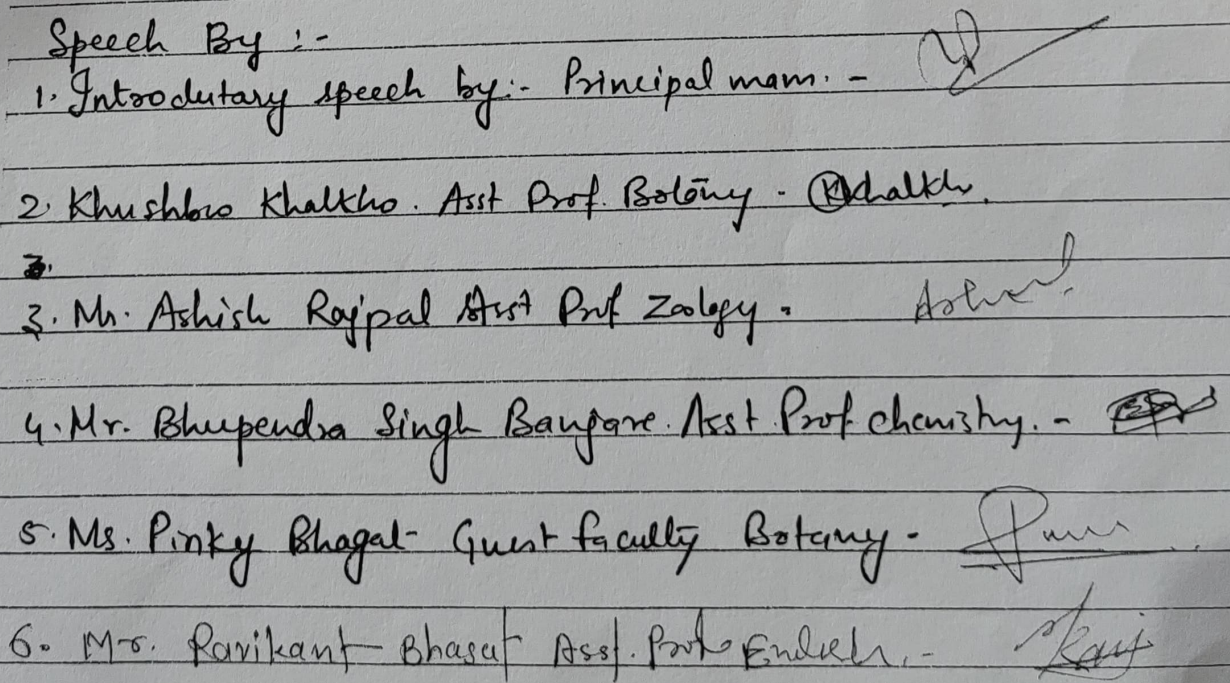 Speech By :-
1. Introdutary speech by:- Principal mam. -
2. Khushboo Khalkho. Asst Prof. Botany - Kkhalkh.
3.
3. Mr. Ashish Rajpal Asst Prof Zoology.
4. Mr. Bhupendra Singh Banjare. Asst. Prof. chemistry. -
5. Ms. Pinky Bhagat - Guest faculty Botany -
6. Mr. Ravikant Bhagat Asst. Prof. English. -